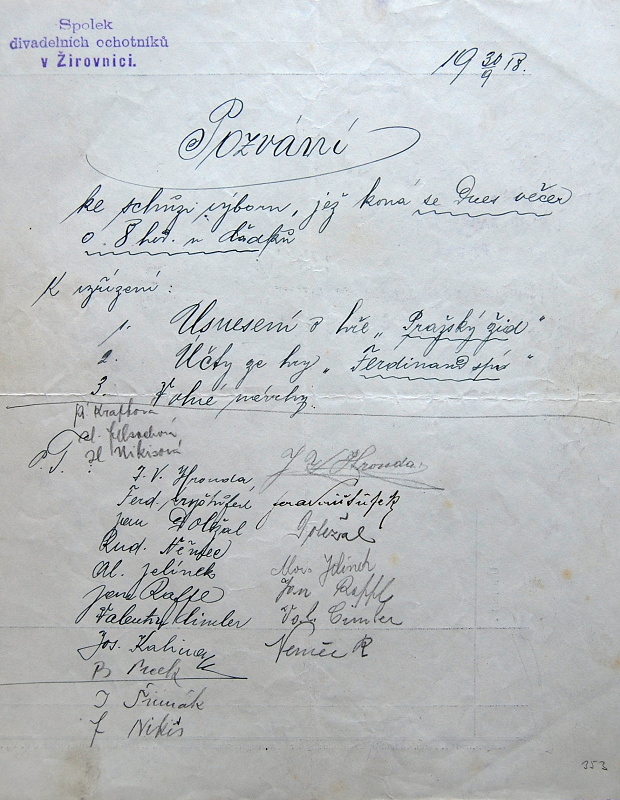 Spolek
divadelních ochotníků
v Žirovnici.
19 30/9 18.
Pozvání
ke schůzi výboru, jež koná se Dnes večer
o. 8 hod. u dědků
K vyřízení:
1. Usnesení o hře „Pražský žid"
2. Účty ze hry „Ferdinand spí"
3. Volné návrhy.
Kraftová
Nikisová
P. T.
J. V. Hronda, J V Hronda
Ferd.
Jan Doležal Doležal
Rud. Němec
Al. Jelínek Alois Jelínek
Jan Rappl
Valentin Cimler Val. Cimler
Jos. Kalina Nemèc R
B
J Šimák
f Nikis
353